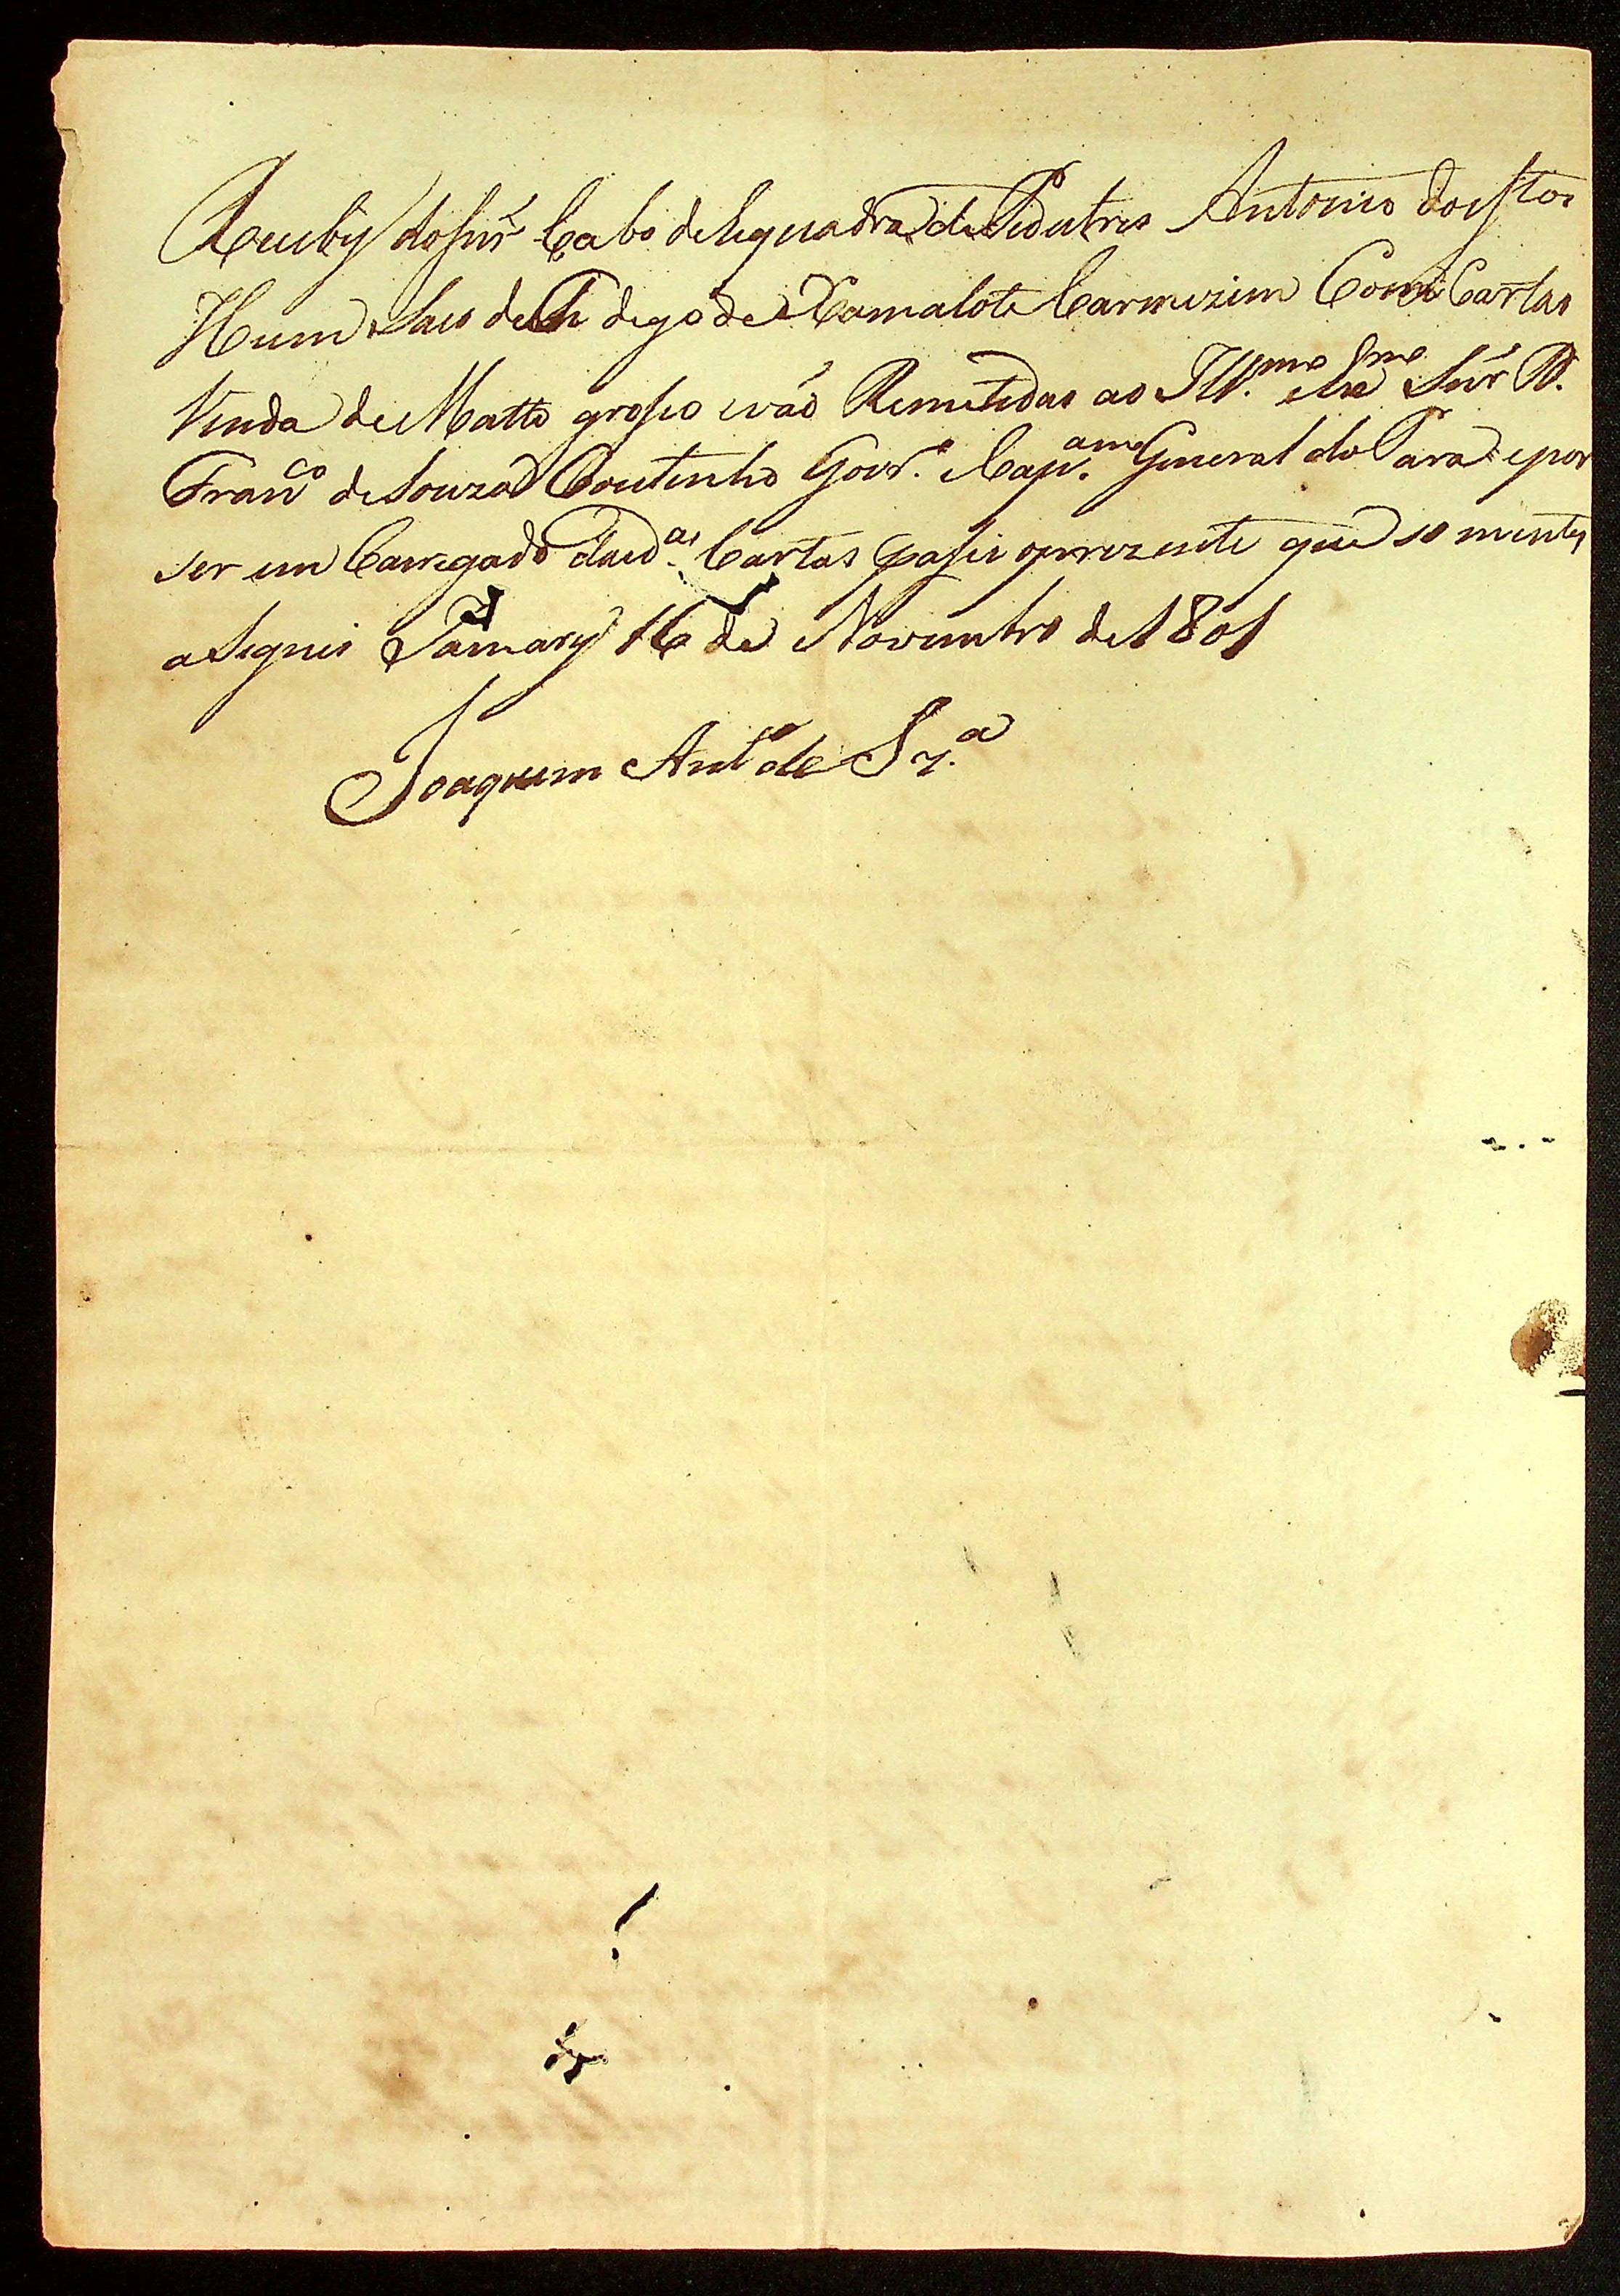 Recuby do Snr̃ Cabo de Sequadra de Pedutres Antonio dos Stos
Hum Saco de de Xamalote Carmezim Com Cartas
Vinda de Matto groso e vaõ Remetidas ao Ill.mo e Snr̃ D.
Franco de Souza Coutinho Gov.or e Cap.am General do Para e por
ser em Carregado das d.as Cartas pasei o prezente que so mente
asignei Jamary 16 de Novembro de 1801
Joaquim Anto de Sz.a